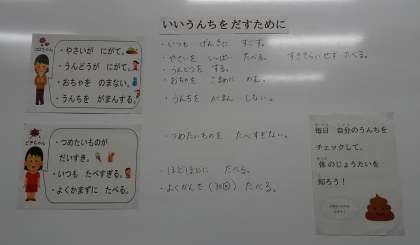 いいうんちを だすために
・やさいが にがて。
・うんどうが にがて。
・おちゃを のまない。
・うんちを がまんする。
・いつも げんきに すごす。
・やさいを いっぱい たべる。 すききらいせず たべる。
・うんどうを する。
・おちゃを こまめに のむ。
・うんちを がまん しない。
・つめたいものが
だいすき。
・いつも たべすぎる。
・よくかまずに たべる。
・つめたいものを たべすぎない。
・ほどほどに たべる。
・よくかんで (30回) たべる。
毎日 自分のうんちを
チェックして、
体のじょうたいを
知ろう!